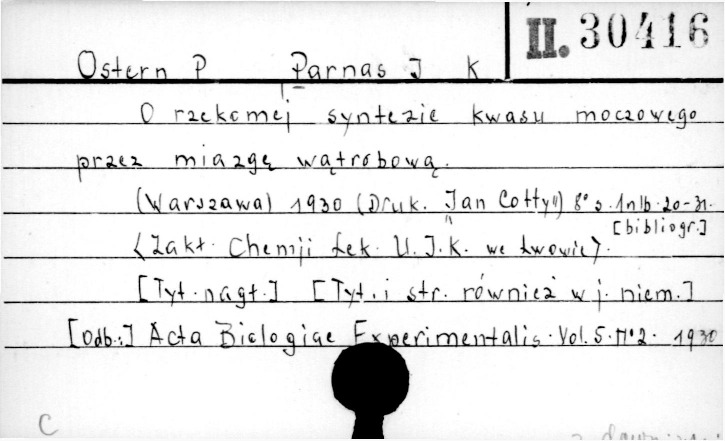 II. 30416
Ostern P Parnas J K
O rzekomej syntezie kwasu moczowego
przez miazgę wątrobową.
(Warszawa) 1930 (Druk. "Jan Cotty") 8° s. 1nlb. 20-31.
[bibliogr.]
<Zakł. Chemji Lek. U. J. K. we Lwowie>.
[Tyt. nagł.] [Tyt. i str. również w j. niem.]
[Odb.:] Acta Biologiae Experimentalis. Vol. 5. N°2. 1930
C